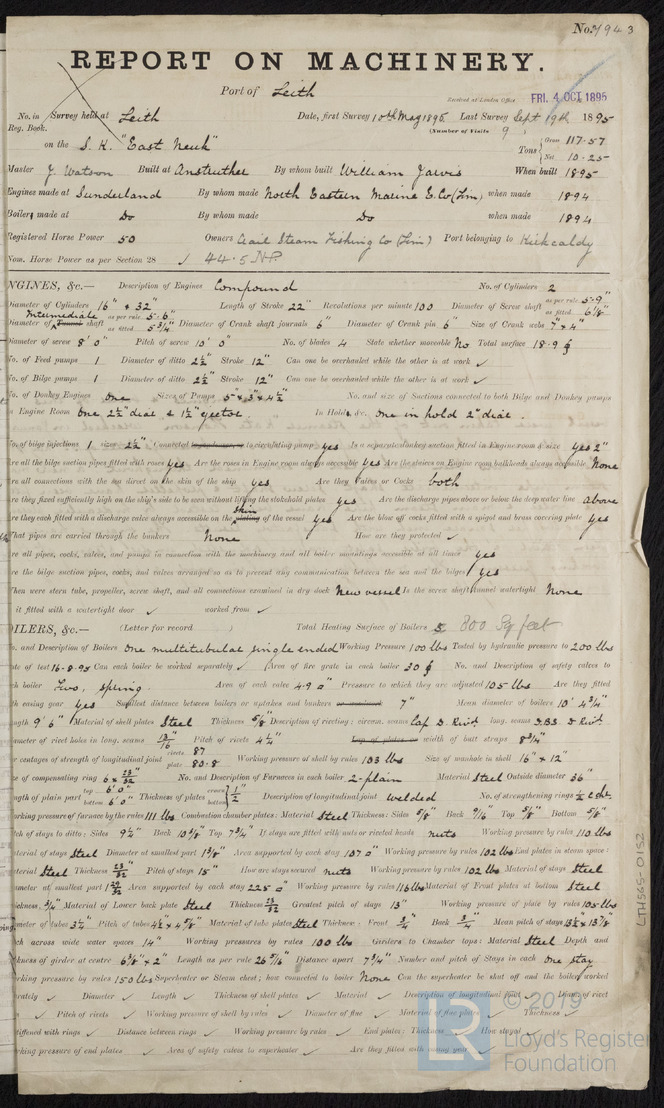 No. 7943
REPORT ON MACHINERY.
Port of Leith
Received at London Office FRI. 4 OCT 1895
No. in Survey held at Leith Date, first Survey 10th May 1895 Last Survey Sept 19th 1895
Reg. Book. (Number of Visits 9
on the S.K. "East Neuk" Tons Gross 117.57 Net 10.25
Master J. Watson Built at Anstruther By whom built William Jarvis When built 1895
Engines made at Sunderland By whom made North Eastern Marine E. Co (Lim) when made 1894
Boilers made at Do By whom made Do when made 1894
Registered Horse Power 50 Owners Crail Steam Fishing Co (Lim) Port belonging to Kirkcaldy
Nom. Horse Power as per Section 28 44.5 NP
NGINES, &c.— Description of Engines Compound No. of Cylinders 2
Diameter of Cylinders 16" & 32" Length of Stroke 22" Revolutions per minute 100 Diameter of Screw shaft as per rule 5.9" as fitted 6 1/8"
Diameter of Intermediate Tunnel shaft as per rule 5.6" as fitted 5 3/4" Diameter of Crank shaft journals 6" Diameter of Crank pin 6" Size of Crank webs 7" x 4"
Diameter of screw 8' 0" Pitch of screw 10' 0" No. of blades 4 State whether moveable No Total surface 18.9
No. of Feed pumps 1 Diameter of ditto 2 1/2" Stroke 12" Can one be overhauled while the other is at work ✓
No. of Bilge pumps 1 Diameter of ditto 2 1/2" Stroke 12" Can one be overhauled while the other is at work ✓
No. of Donkey Engines one Sizes of Pumps 5" x 3" x 4 1/2" No. and size of Suctions connected to both Bilge and Donkey pumps
n Engine Room One 2 1/2" dia & 1 1/2" ejector. In Hold, &c. one in hold 2" dia.
No. of bilge injections 1 size 2 1/2" Connected to circulating pump yes Is a separate donkey suction fitted in Engine room & size yes 2"
re all the bilge suction pipes fitted with roses yes Are the roses in Engine room always accessible yes Are the sluices on Engine room bulkheads always accessible None
re all connections with the sea direct on the skin of the ship yes Are they Valves or Cocks both
re they fixed sufficiently high on the ship's side to be seen without lifting the stokehold plates yes Are the discharge pipes above or below the deep water line above
re they each fitted with a discharge valve always accessible on the skin plating of the vessel yes Are the blow off cocks fitted with a spigot and brass covering plate yes
hat pipes are carried through the bunkers None How are they protected ✓
re all pipes, cocks, valves, and pumps in connection with the machinery and all boiler mountings accessible at all times yes
re the bilge suction pipes, cocks, and valves arranged so as to prevent any communication between the sea and the bilges yes
hen were stern tube, propeller, screw shaft, and all connections examined in dry dock New vessel Is the screw shaft tunnel watertight None
it fitted with a watertight door ✓ worked from ✓
OILERS, &c.— (Letter for record ) Total Heating Surface of Boilers 800 Sq feet
o. and Description of Boilers One multitubular single ended Working Pressure 100 lbs Tested by hydraulic pressure to 200 lbs
ate of test 16.8.95 Can each boiler be worked separately ✓ Area of fire grate in each boiler 30 No. and Description of safety valves to
ch boiler Two, spring. Area of each valve 4.9 □" Pressure to which they are adjusted 105 lbs Are they fitted
th easing gear yes Smallest distance between boilers or uptakes and bunkers 7" Mean diameter of boilers 10' 4 3/4"
ngth 9' 6" Material of shell plates Steel Thickness 5/8" Description of riveting: circum. seams Lap D. Rivd long. seams D.B.S. D Rivd.
ameter of rivet holes in long. seams 13/16" Pitch of rivets 4 1/4" Lap of plates or width of butt straps 8 3/4"
er centages of strength of longitudinal joint rivets 87 plate 80.8 Working pressure of shell by rules 103 lbs Size of manhole in shell 16" x 12"
ze of compensating ring 6 x 23/32" No. and Description of Furnaces in each boiler 2-plain Material Steel Outside diameter 36"
ngth of plain part top 6' 0" bottom 6' 0" Thickness of plates crown bottom 1/2" Description of longitudinal joint welded No. of strengthening rings
orking pressure of furnace by the rules 111 lbs Combustion chamber plates: Material Steel Thickness: Sides 5/8" Back 9/16" Top 5/8" Bottom 5/8"
tch of stays to ditto: Sides 9 1/4" Back 10 3/8" Top 7 3/4" If stays are fitted with nuts or riveted heads nuts Working pressure by rules 110 lbs
aterial of stays Steel Diameter at smallest part 1 3/8" Area supported by each stay 107 □" Working pressure by rules 102 lbs End plates in steam space:
aterial Steel Thickness 23/32" Pitch of stays 15" How are stays secured nuts Working pressure by rules 102 lbs Material of stays Steel
ameter at smallest part 1 29/32" Area supported by each stay 225 □" Working pressure by rules 116 lbs Material of Front plates at bottom Steel
ickness 3/4" Material of Lower back plate Steel Thickness 23/32" Greatest pitch of stays 13" Working pressure of plate by rules 105 lbs
ameter of tubes 3 1/4" Pitch of tubes 4 1/2 x 4 5/8" Material of tube plates Steel Thickness: Front 3/4" Back 3/4" Mean pitch of stays 13 1/2" x 13 7/8"
ch across wide water spaces 14" Working pressures by rules 100 lbs Girders to Chamber tops: Material Steel Depth and
ckness of girder at centre 6 3/8" x 2" Length as per rule 26 5/16" Distance apart 7 3/4" Number and pitch of Stays in each One stay
rking pressure by rules 150 lbs Superheater or Steam chest; how connected to boiler None Can the superheater be shut off and the boiler worked
rately ✓ Diameter ✓ Length ✓ Thickness of shell plates ✓ Material ✓ Description of longitudinal joint ✓ Diam. of rivet
✓ Pitch of rivets ✓ Working pressure of shell by rules ✓ Diameter of flue ✓ Material of flue plates ✓ Thickness ✓
stiffened with rings ✓ Distance between rings ✓ Working pressure by rules ✓ End plates: Thickness ✓ How stayed ✓
rking pressure of end plates ✓ Area of safety valves to superheater ✓ Are they fitted with easing gear ✓
LTH565-0152
LR
© 2019
Lloyd's Register
Foundation